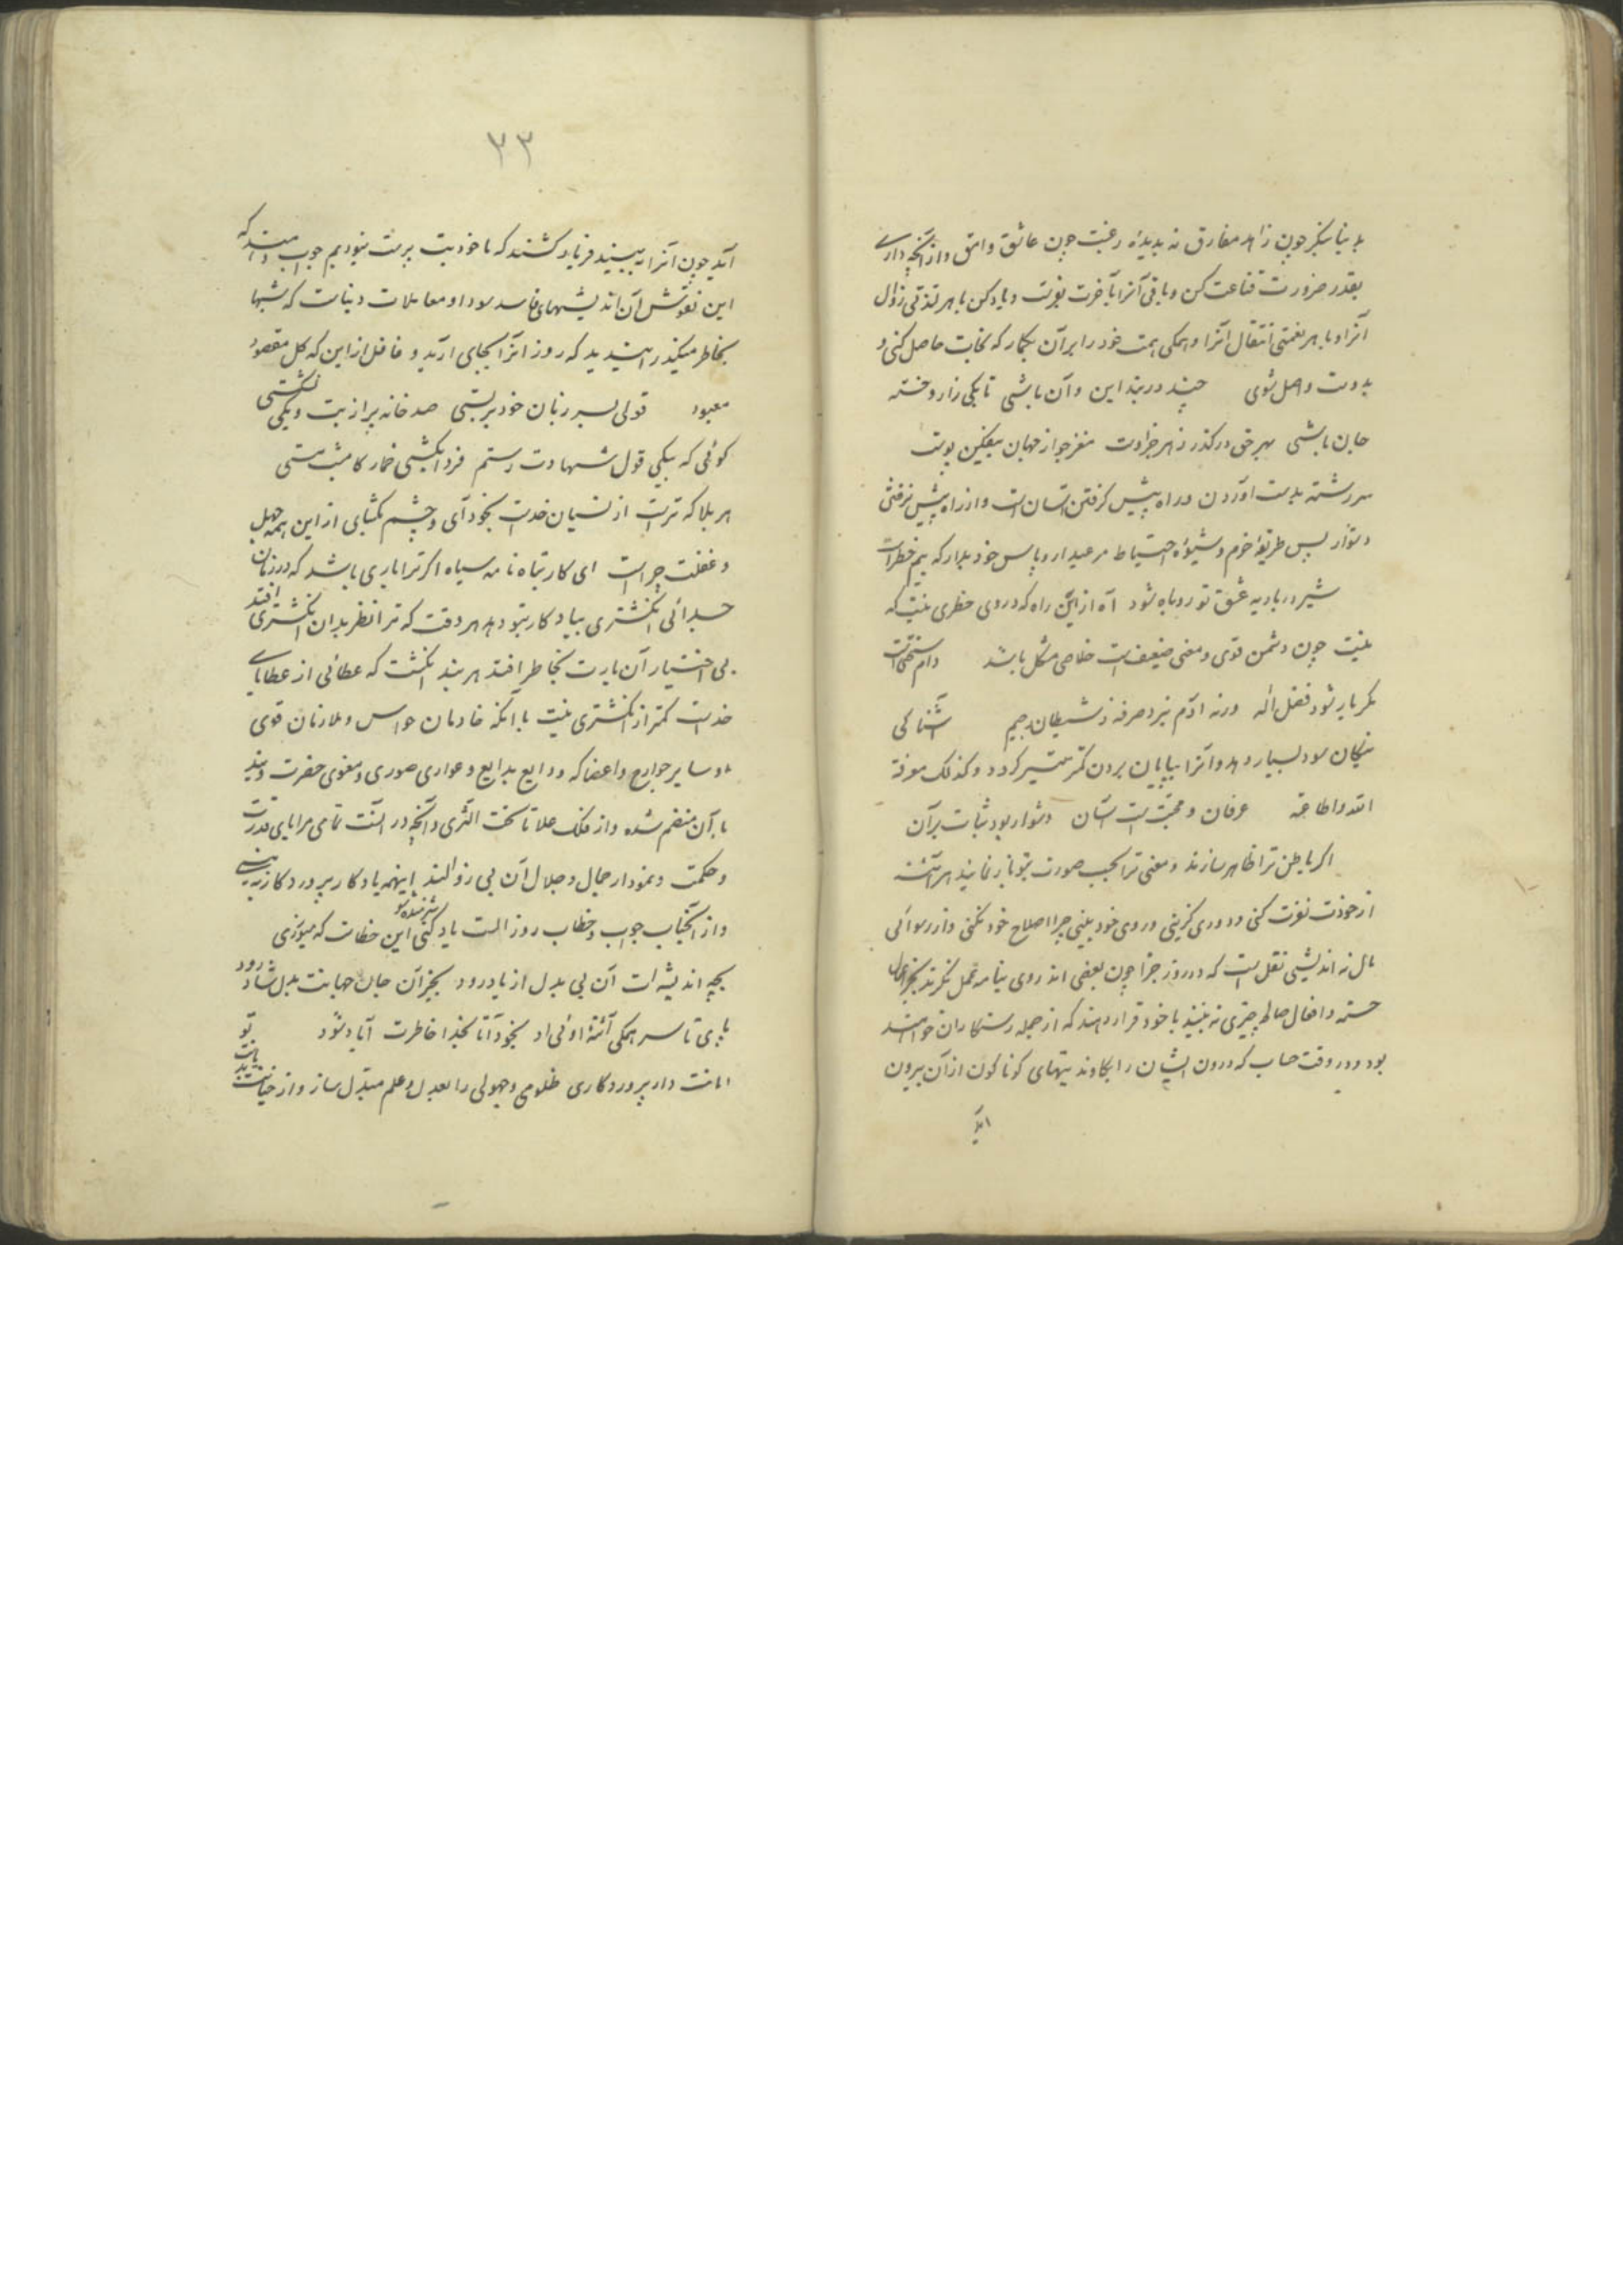 بدنیا بنگر چون زاهد مفارق نه بدیدهٔ رغبت چون عاشق وامق و از آنچه داری
بقدر ضرورت قناعت کن و باقی آنرا بآخرت بفرست و یاد کن با هر لذتی زوال
آنرا و با هر نعمتی انتقال آنرا و همگی همت خود را بر آن بگمار که نجات حاصل کنی و
بدوست واصل شوی چند در بند این و آن باشی تا یکی زار و خسته
جان باشی بهر حق درگذر ز هر چه اوست مغز جو از جهان بیفکن پوست
سررشته بدست آوردن و راه پیش گرفتن آسان است و از راه پیش نرفتن
دشوار پس طریقهٔ حزم و شیوهٔ احتیاط مرعی دار و پاس خود بدار که بیم خطر است
شیر در بادیه عشق تو روباه شود آه از این راه که در وی خطری نیست که
نیست چون دشمن قوی و مغنی ضعیف است خلاصی مشکل باشد دام سخت است
مگر یار شود فضل اله ورنه آدم نبرد صرفه ز شیطان رجیم آشنائی
نیکان سود بسیار دهد و آنرا بپایان بردن کمتر میسر گردد و کذلک معرفة
الله و اطاعته عرفان و محبت است آسان دشوار بود ثبات بر آن
اگر باطن ترا ظاهر سازند و معنی ترا بحسب صورت بتو باز نمایند هر آینه
از خودت نفرت کنی و دوری گزینی و روی خود نبینی چرا اصلاح خود نکنی و از رسوائی
مآل نه اندیشی نقل است که در روز جزا چون بعضی اندر وی بنامه عمل نگرند بجز اعمال
حسنه و افعال صالحه چیزی نه بینند با خود قرار دهند که از جمله رستگاران خواهند
بود و در وقت حساب که درون ایشان را بکاوند بتهای گوناگون از آن بیرون
آید
۳۳
آید چون آنرا ببینند فریاد کشند که ما خود بت پرست نبودیم جواب دهند که
این نقوش آن اندیشهای فاسد سود او معاملات دنیاست که شبها
بخاطر میگذرانیدید که روز آنرا بجای آرید و غافل از این که کل مقصود
معبود قولی بسر زبان خود بربستی صد خانه پر از بت و یکی نشکستی
گوئی که بیکی قول شهادت رستم فردات کشی خمار کامشب مستی
هر بلا که تراست از نسیان خداست بخود آی و چشم بگشای از این همه جهل
و غفلت چراست ای کار تباه نامه سیاه اگر ترا یاری باشد که در زمان
جدائی انگشتری بیادگار بتو دهد هر وقت که ترا نظر بدان انگشتری افتد
بی اختیار آن یارت بخاطر افتد هر بند انگشت که عطائی از عطایای
خداست کمتر از انگشتری نیست با آنکه خادمان حواس و ملازمان قوی
و سایر جوارح و اعضا که ودایع بدایع و عواری صوری و معنوی حضرت ویند
با آن منضم شده و از فلک علا تا تحت الثری و آنچه در آنست تمامی مرایای قدرت
و حکمت و نمودار جمال و جلال آن بی زوالند اینهمه یادگار پروردگار بینی
و از آنجناب جواب و خطاب روز الست یاد نکنی شرمنده شو این خطاست که میورزی
بچه اندیشه ات آن بی بدل از یاد رود بجز آن جان جهانت بدل شاد رود
پای تا سر همگی آئنهٔ اوئی اد بخود آ تا بخدا خاطرت آباد شود تو
امانت دار پروردگاری ظلومی و جهولی را بعدل و علم مبدل ساز و از خیانت